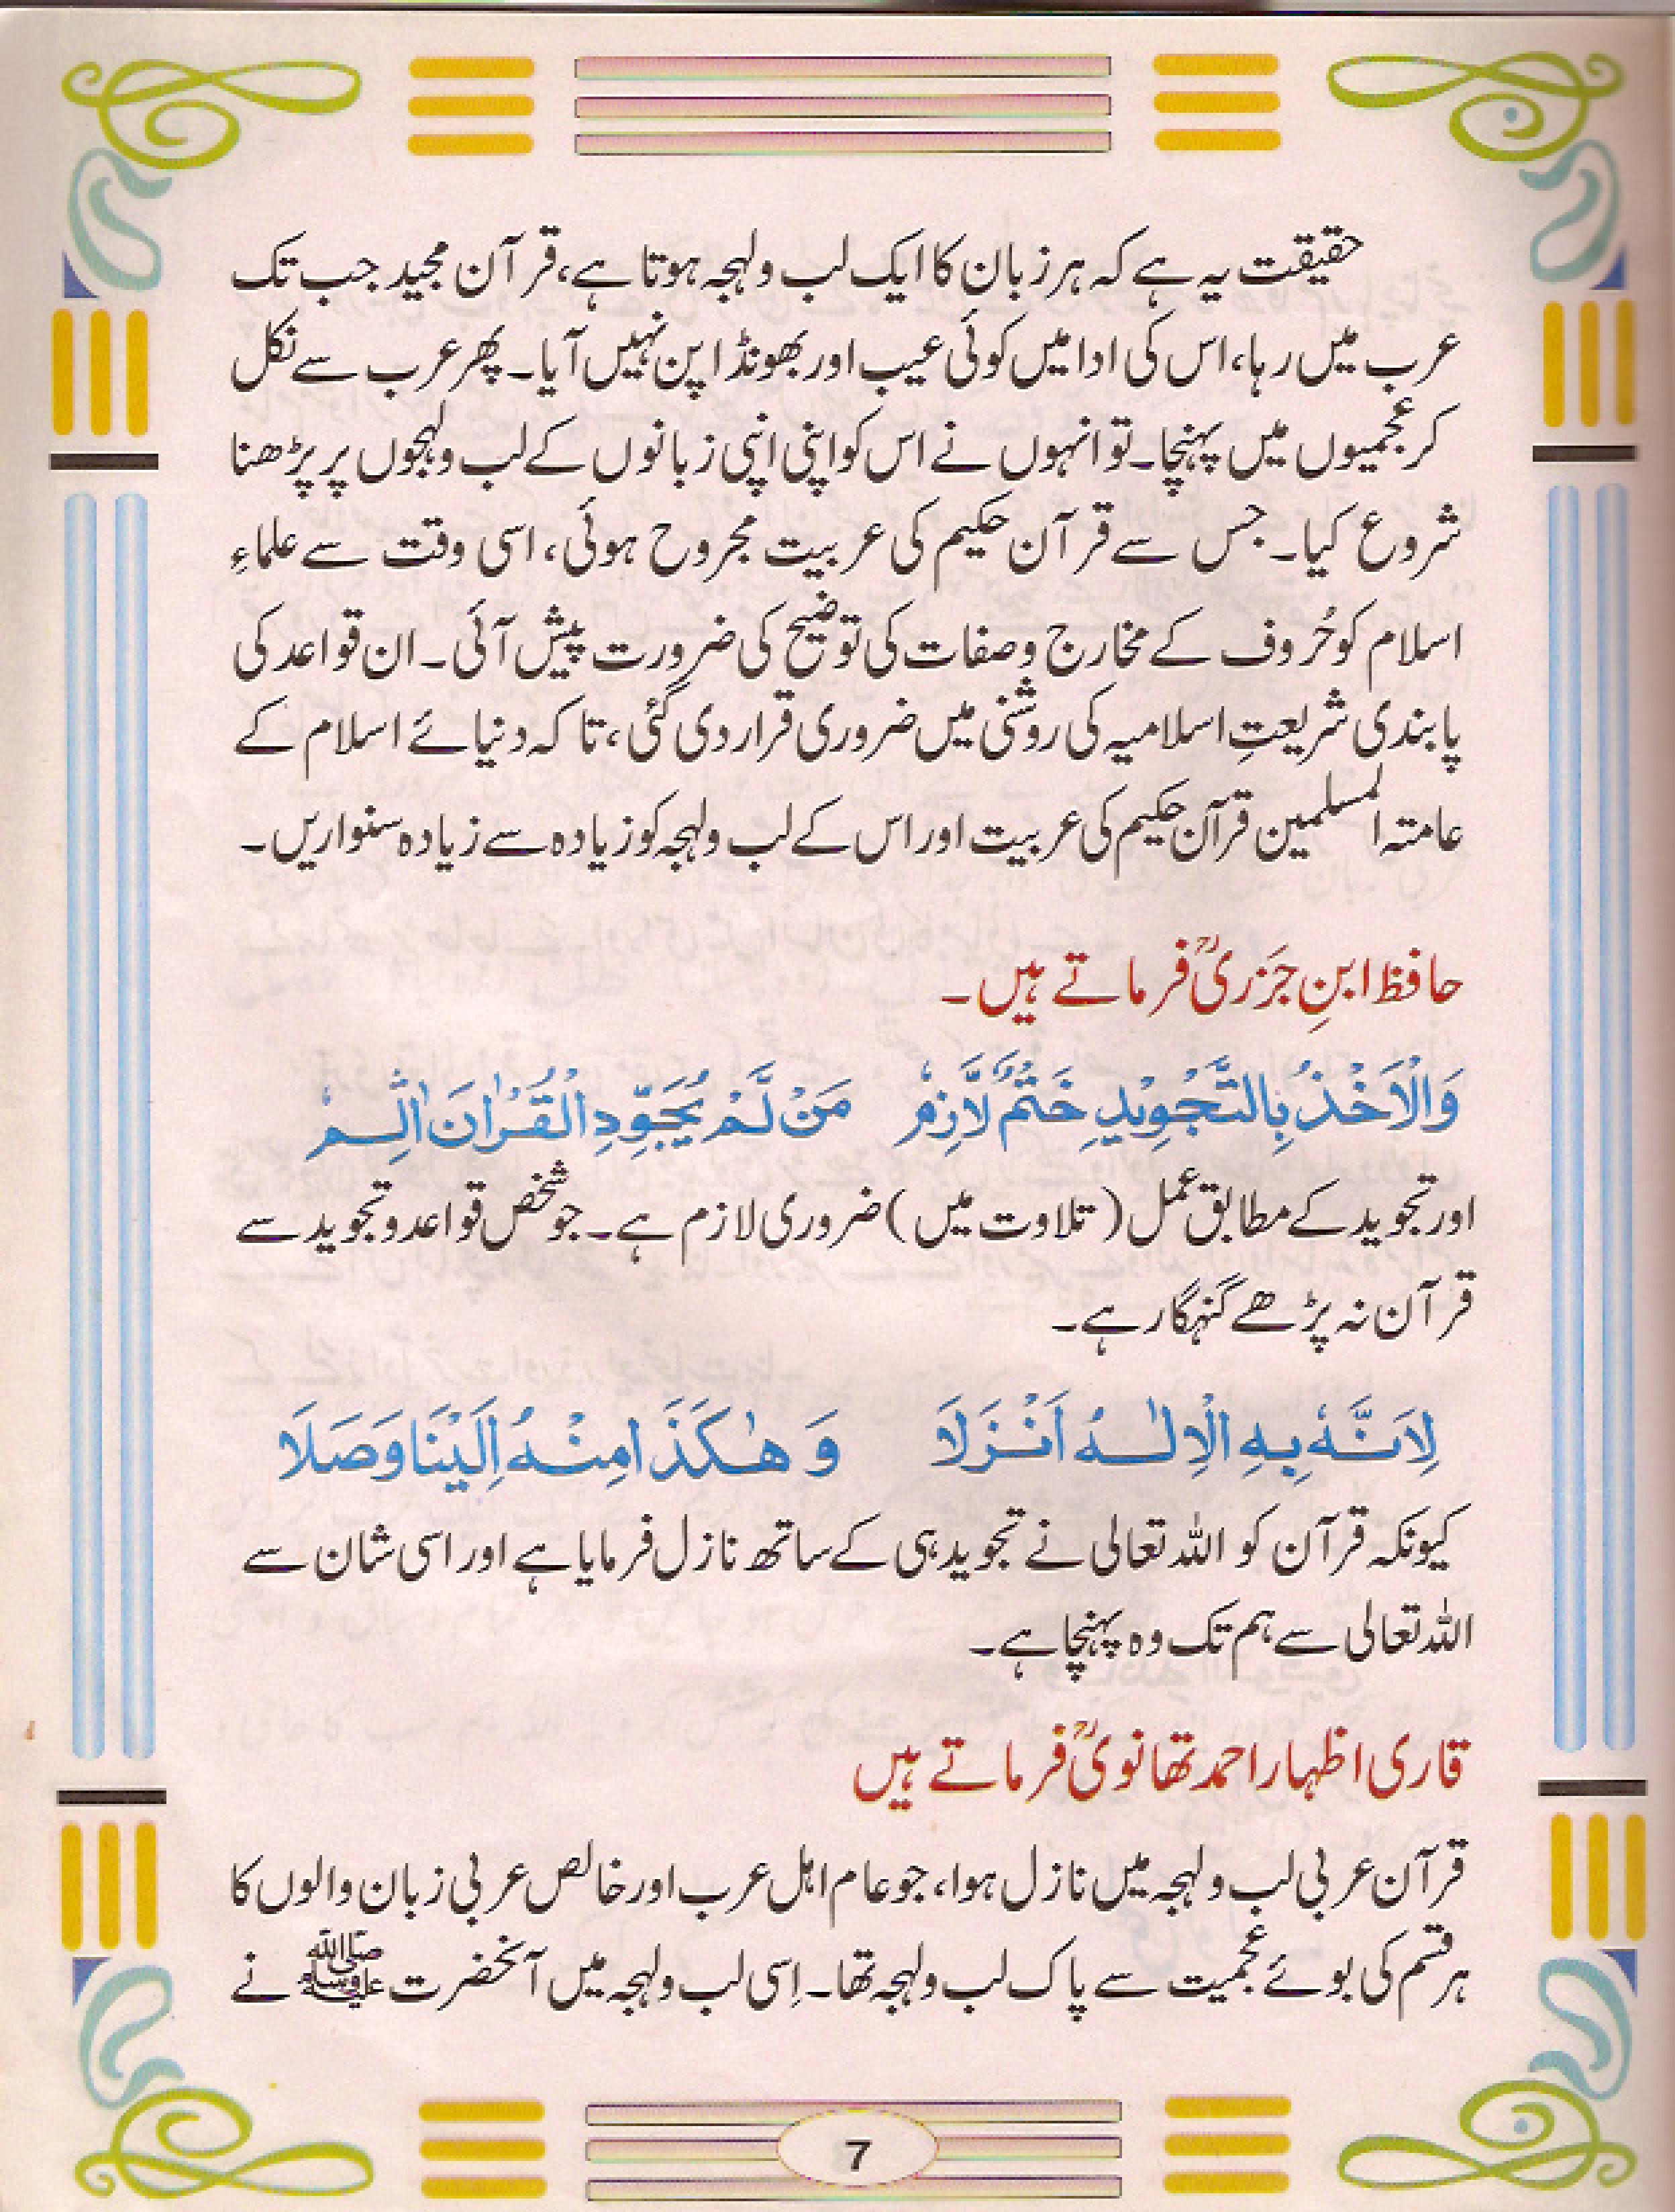 حقیقت یہ ہے کہ ہر زبان کا ایک لب ولہجہ ہوتا ہے، قرآن مجید جب تک
عرب میں رہا، اس کی ادا میں کوئی عیب اور بھونڈا پن نہیں آیا۔ پھر عرب سے نکل
کر عجمیوں میں پہنچا۔ تو انہوں نے اس کو اپنی اپنی زبانوں کے لب ولہجوں پر پڑھنا
شروع کیا۔ جس سے قرآن حکیم کی عربیت مجروح ہوئی، اسی وقت سے علماءِ
اسلام کو حُروف کے مخارج وصفات کی توضیح کی ضرورت پیش آئی۔ ان قواعد کی
پابندی شریعتِ اسلامیہ کی روشنی میں ضروری قرار دی گئی، تاکہ دنیائے اسلام کے
عامتہ المسلمین قرآن حکیم کی عربیت اور اس کے لب ولہجہ کو زیادہ سے زیادہ سنواریں۔
حافظ ابنِ جَزَریؒ فرماتے ہیں۔
وَالْاَخْذُ بِالتَّجْوِيْدِ خَتْمٌ لَّازِمٗ مَنْ لَّمْ يُجَوِّدِ الْقُرْاٰنَ اٰثِمٗ
اور تجوید کے مطابق عمل (تلاوت میں) ضروری لازم ہے۔ جو شخص قواعد و تجوید سے
قرآن نہ پڑھے گنہگار ہے۔
لِاَنَّهٗ بِهِ الْاِلٰـهُ اَنْزَلَا وَ هٰـكَذَا مِنْـهُ اِلَيْنَا وَصَلَا
کیونکہ قرآن کو اللہ تعالی نے تجوید ہی کے ساتھ نازل فرمایا ہے اور اسی شان سے
اللہ تعالی سے ہم تک وہ پہنچا ہے۔
قاری اظہار احمد تھانویؒ فرماتے ہیں
قرآن عربی لب ولہجہ میں نازل ہوا، جو عام اہل عرب اور خالص عربی زبان والوں کا
ہر قسم کی بوئے عجمیت سے پاک لب ولہجہ تھا۔ اِسی لب ولہجہ میں آنحضرت ﷺ نے
7